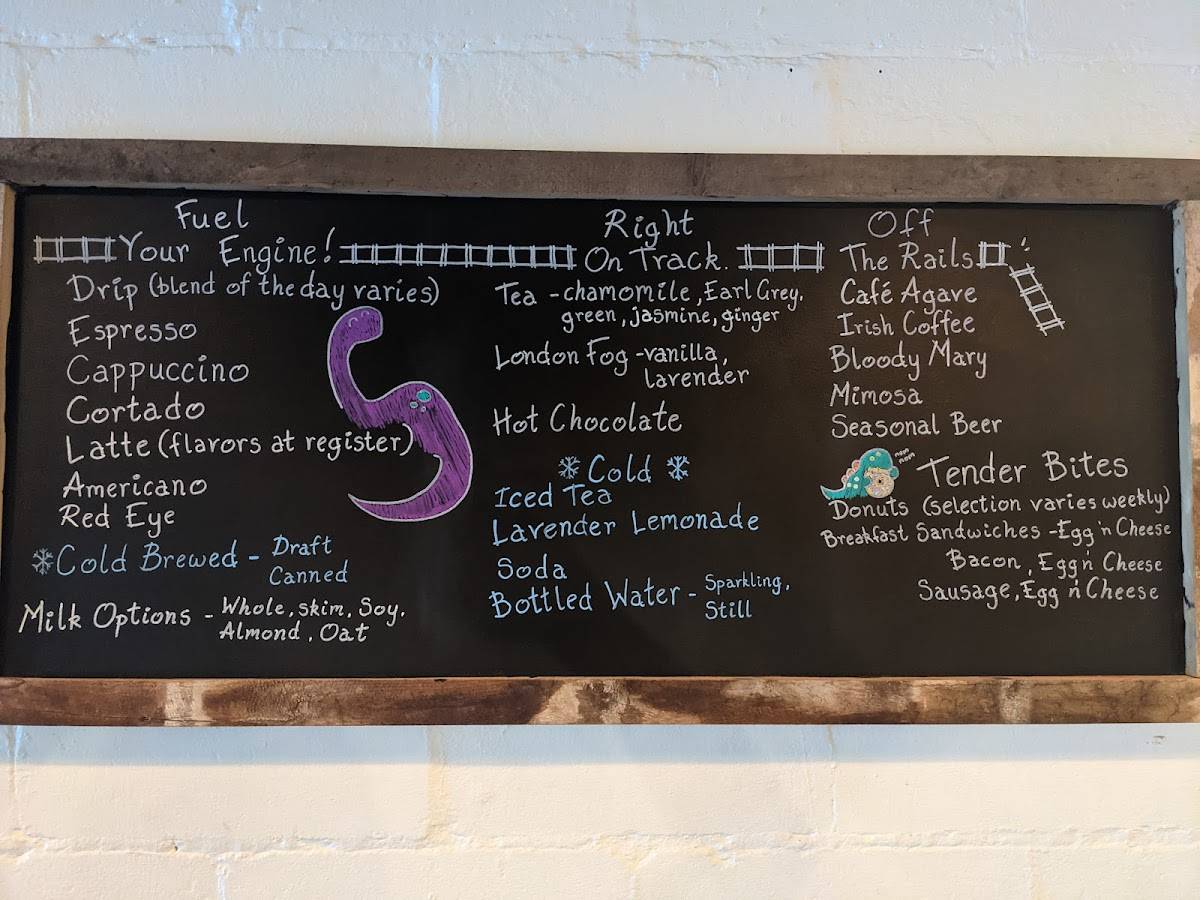 Fuel
Your Engine!
Drip (blend of the day varies)
Espresso
Cappuccino
Cortado
Latte (flavors at register)
Americano
Red Eye
Cold Brewed - Draft
Canned
Milk Options - Whole, skim, Soy,
Almond, Oat
Right
On Track.
Tea - chamomile, Earl Grey,
green, jasmine, ginger
London Fog - vanilla,
lavender
Hot Chocolate
Cold
Iced Tea
Lavender Lemonade
Soda
Bottled Water - Sparkling,
Still
Off
The Rails
Café Agave
Irish Coffee
Bloody Mary
Mimosa
Seasonal Beer
nom
nom
Tender Bites
Donuts (selection varies weekly)
Breakfast Sandwiches - Egg 'n Cheese
Bacon, Egg 'n Cheese
Sausage, Egg 'n Cheese